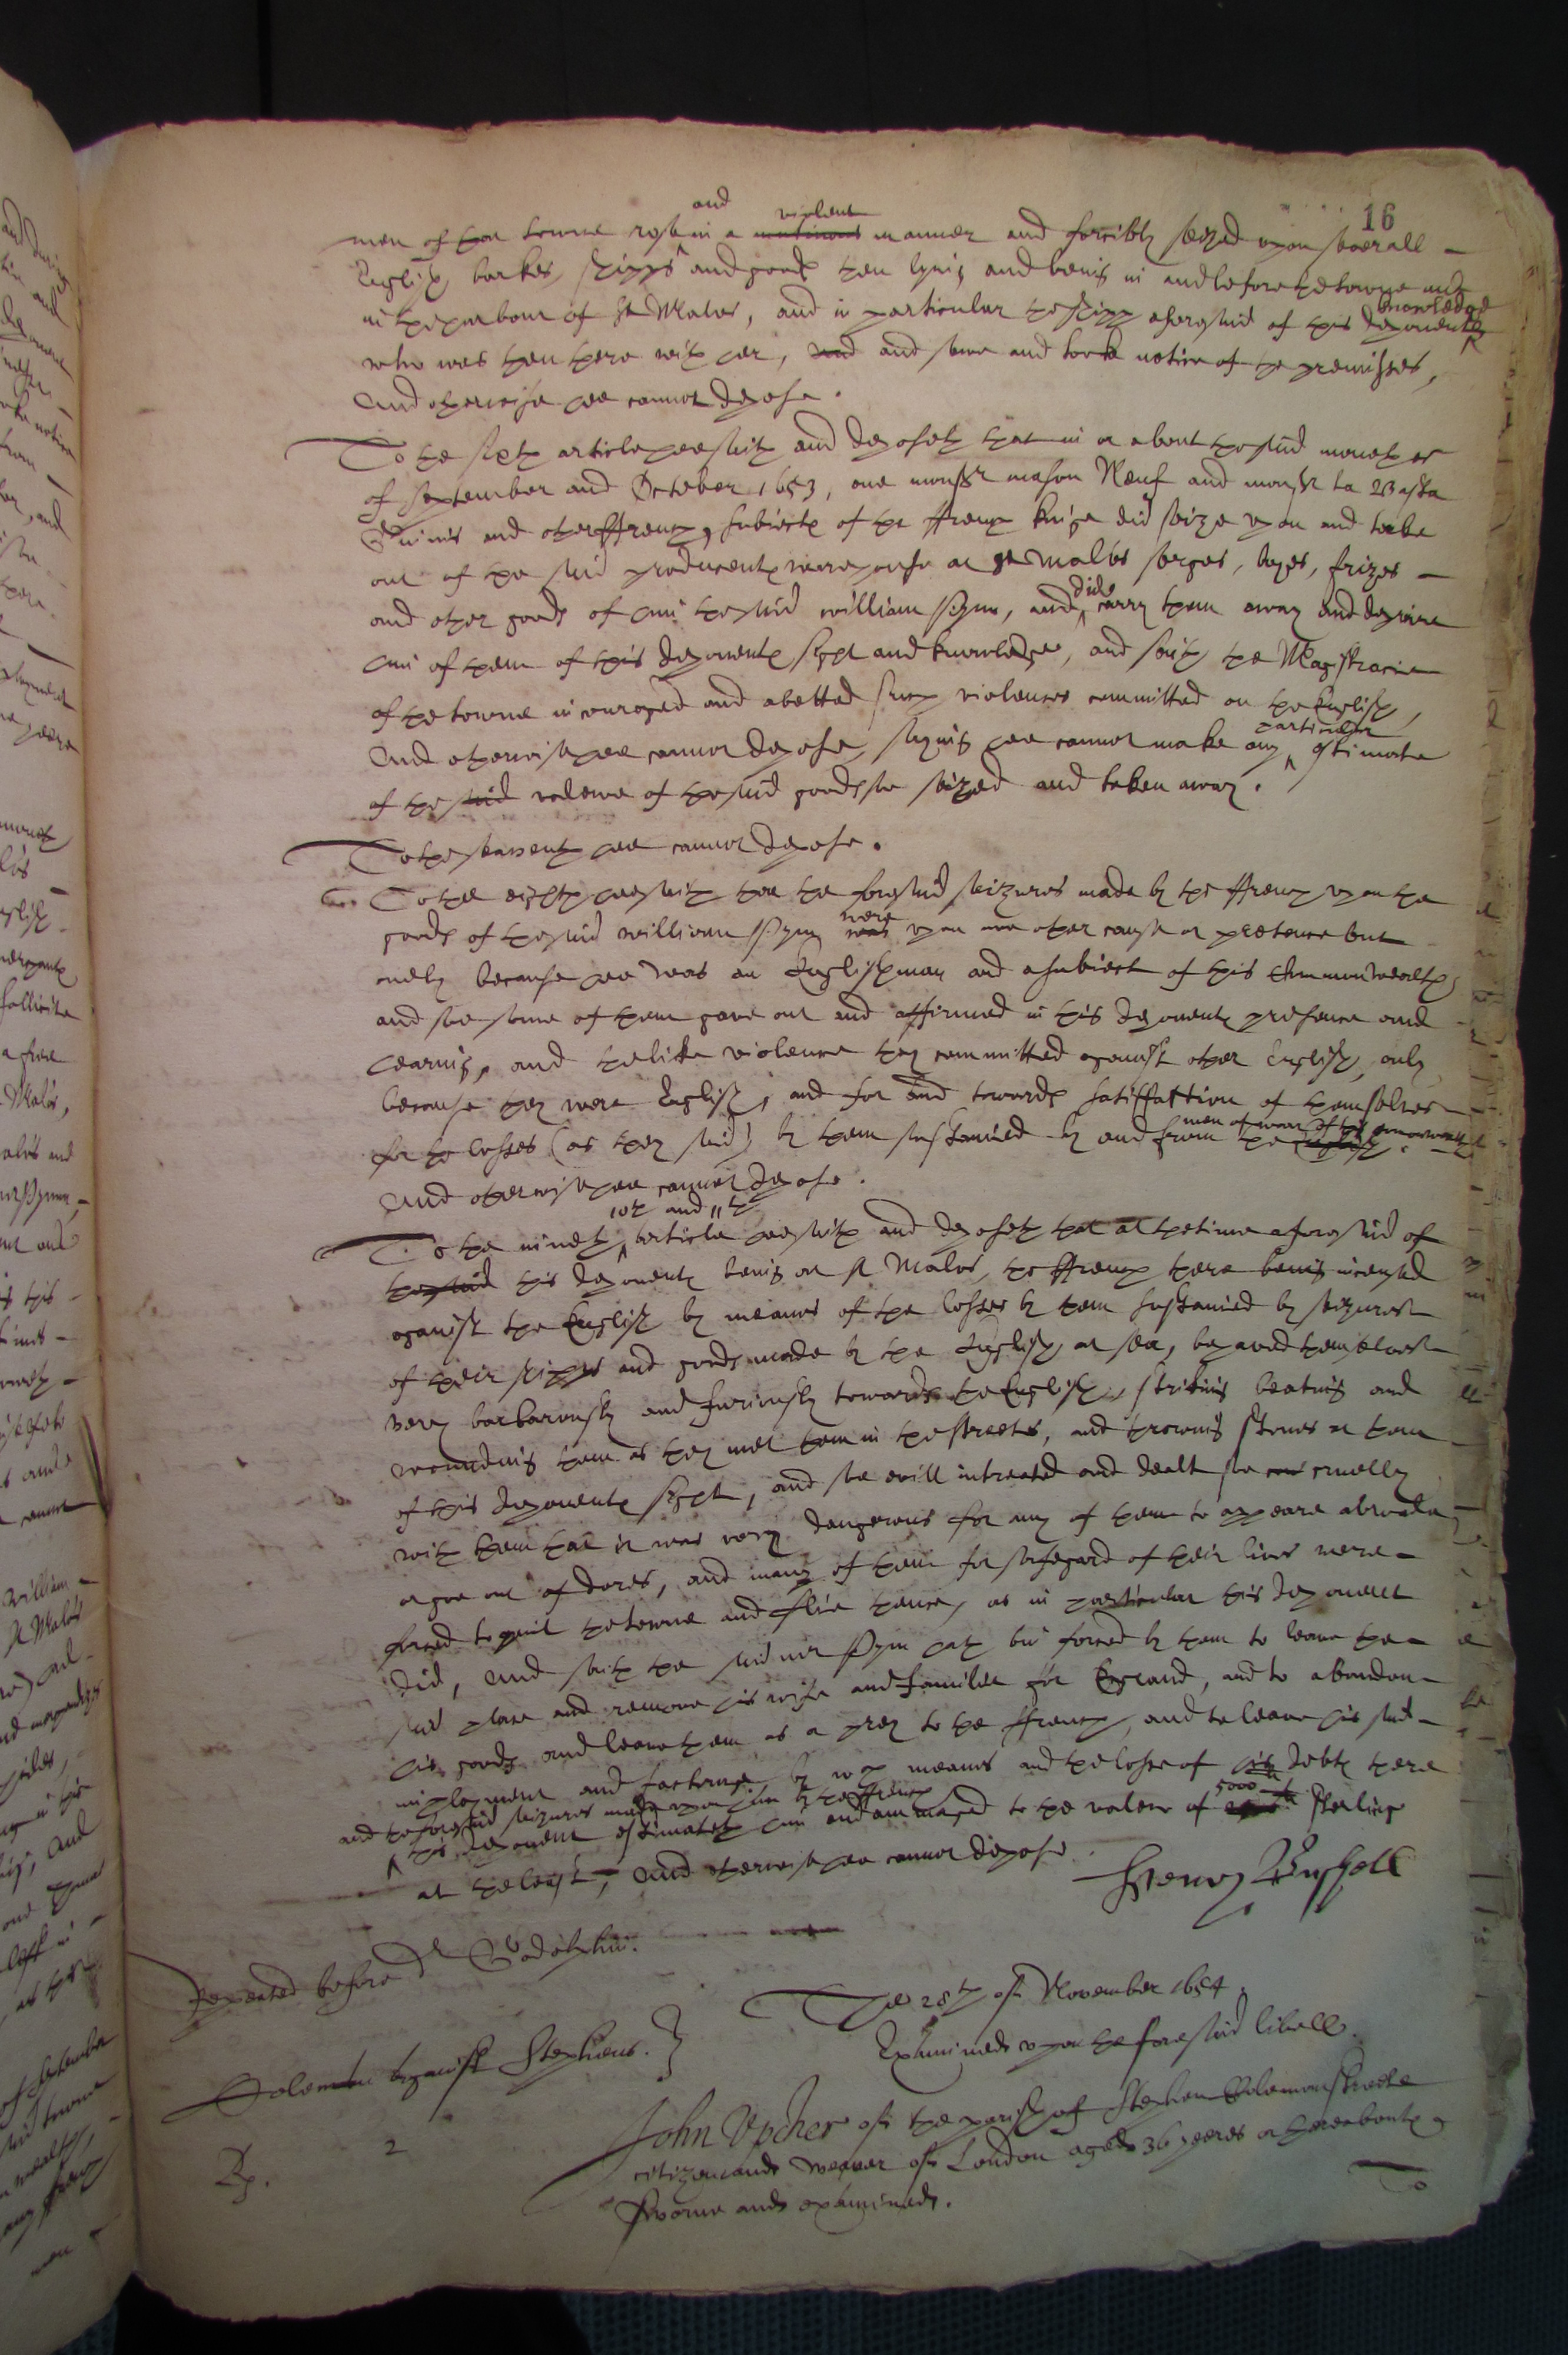 16
men of that towne rose in a mutinous violent manner and forcibly seized upon severall
English barkes, shipps and goods then lying and being in and before the towne and
in the harbour of St Malos, and in particular the shipp aforesaid of this deponents knowledge
who was then there with her, and and sawe and tooke notice of the premisses,
And otherwise hee cannot depose.
To the sixth article hee saith and deposeth that in or about the said moneths
of September and October 1653, one monsr mason Neuf and monsr la
and other ffrench, subiects of the ffrench kinge did seize upon and take
out of the said producents warehouse at St Malos serges, bayes, frizes
and other goods of him the said william Pym, and did carry them away and deprive
him of them of this deponents sight and knowledge, and saith the Magistracie
of the towne incouraged and abetted such violences committed on the English,
And otherwise hee cannot depose, saying hee cannot make any particular estimate
of the said valewe of the said goods soe seized and taken away.
To the seaventh hee cannot depose.
To the eighth hee saith that the foresaid seizures made by the ffrench upon the
goods of the said william Pym was were upon noe other cause or pretence but
onely because hee was an Englishman and a subiect of this Commonwealth,
and soe some of them gave out and affirmed in this deponents presence and
hearing, and the like violence they committed against other English, only
because they were English, and for and towards satisfaction of themselves
for the losses (as they said) by them sustained by and from the men of warr of this commonwealth
And otherwise hee cannot depose.
To the nineth, 10th and 11th article hee saith and deposeth that at the time aforesaid of
the said this deponents being at St Malos, the ffrench there being incensed
against the English by meanes of the losses by them sustained by seizures
of their shipps and goods made by the English at sea, behaved themselves
very barbarously and furiously towards the English, striking beating and
wounding them as they met them in the streets, and throwing stones at them
of this deponents sight, and soe evill intreated and dealt soe cruelly
with them that it was very dangerous for any of them to appeare abroade
or goe out of dores, and many of them for safegard of their lives were
forced to quit the towne and flie thence, as in particular this deponent
did, and saith the said mr Pym hath bin forced by them to leave the
said place and remove his wife and familie for England, and to abandon
his goods and leave them as a prey to the ffrench, and to leave his said
imployment and factorie, by wch meanes and the losse of his debts there
and the foresaid seizures made upon him by the ffrench
this deponent estimateth him endammaged to the valew of 5000 li sterling
at the least, And otherwise hee cannot depose.
Henry Bushell
Repeated before Dr Godolphin.
The 28th of November 1654.
Examined upon the foresaid libell.
Solomon against Stephens.
Rp. 2
John Upcher of the parish of Stephen Colemanstreete
citizen and weaver of London aged 36 yeeres or thereabouts
sworne and examined.
To